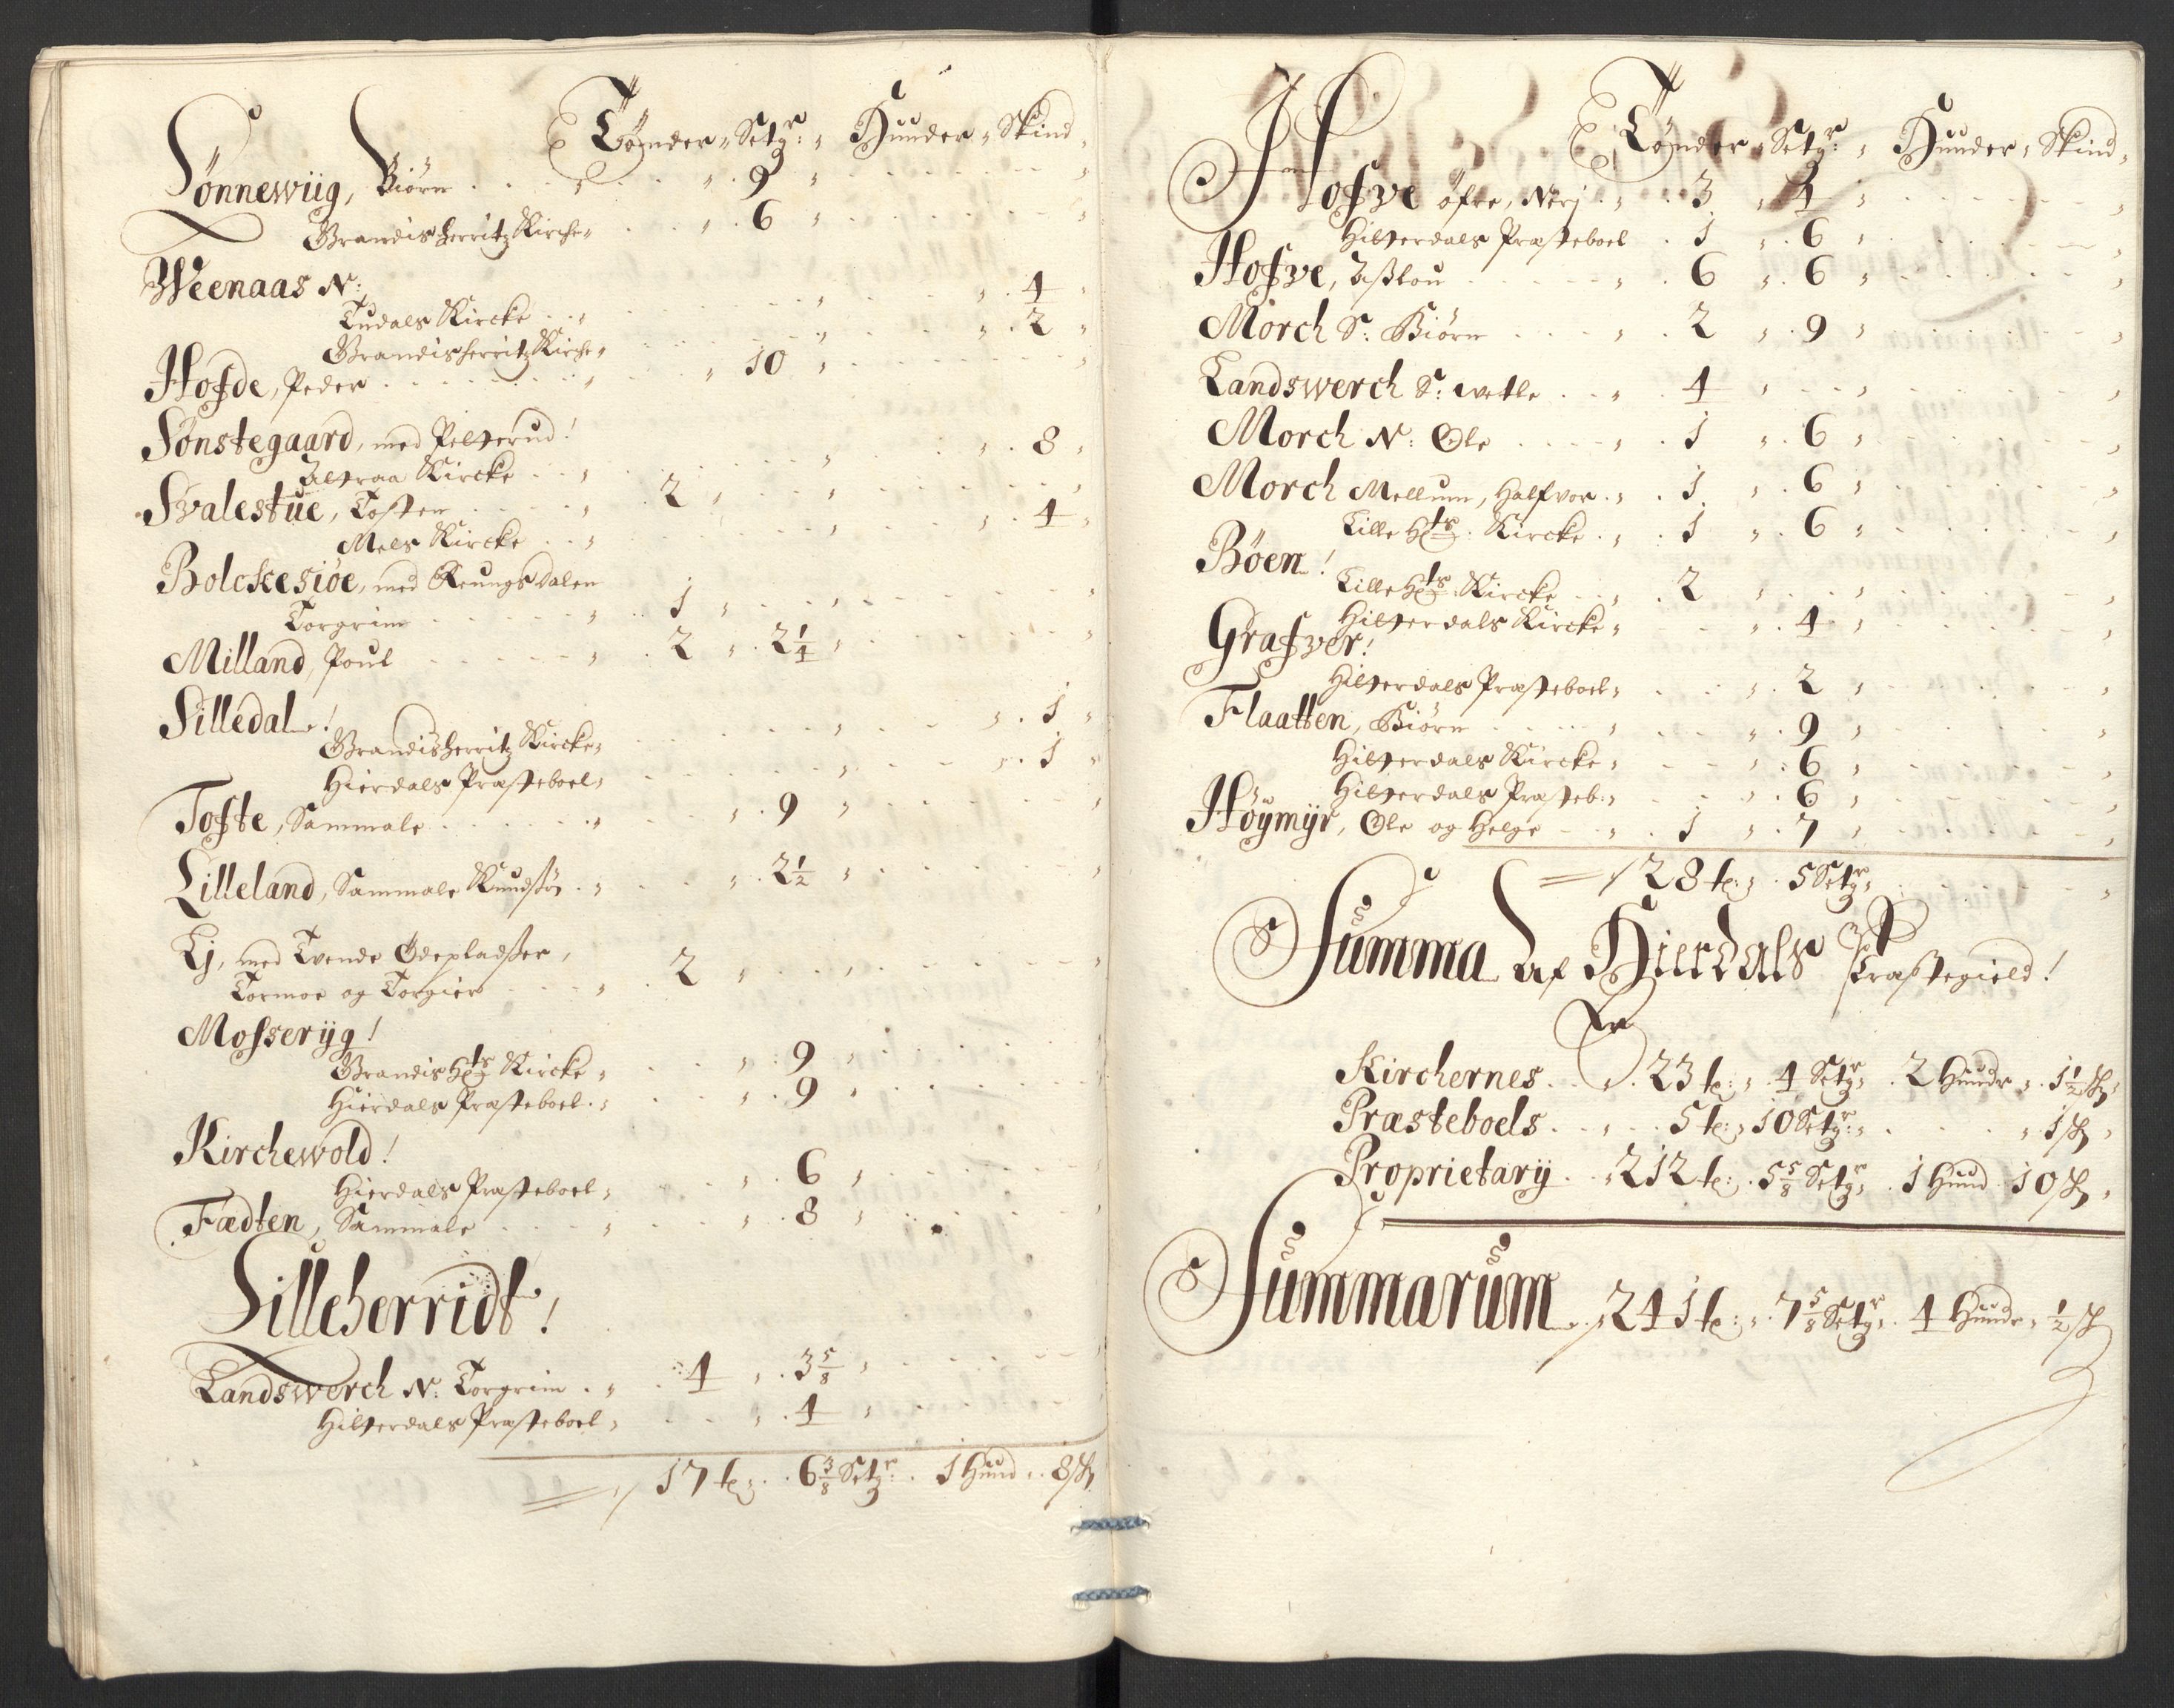 Tønder " Setgr: " Huuder " Skind
Lønnewiig, Biørn 9
Brandisherritz Kirche 6
Weenaas N:
Tudals Kircke 4
Brandisherritz Kirche 2
Hofde, Peder 10
Sønstegaard, med Pelterud!
Kircke 8
Svalestue, Tosten 2
Mels Kircke 4
Bolckesiøe, med Reungsdalen
Torgrim 1
Milland, Poul 2 " 2 1/4
Silledal!
Brandisherritz Kircke 1
Hierdals Præsteboel 1
Tofte, Sammale 9
Lilleland, Sammale Knudsøn 2 1/2
Lj, med Tvende Ødepladser,
Tormoe og Torgier 2
Mosserijg!
Brandis Hts Kircke 9
Hierdals Præsteboel 9
Kirchewold!
Hierdals Præsteboel 6
Fædten, Sammale 8
Lilleherridt!
Landswerch N: Torgrim 4 " 3 5/8
Hitterdals Præsteboel 4
17 t: 6 3/8 Setgr: 1 Huud " 8 sk
Tønder " Setgr: " Huuder " Skind
Hofve øfre, Nerj 3 " 4
Hitterdals Præsteboel 1 " 6
Hofve, Aslou 6 " 6
Morch S: Biørn 2 " 9
Landswerch S: wetle 4
Morch N: Ole 1 " 6
Morch Mellum, Halfvor 1 " 6
Lille Hts: Kircke 1 " 6
Bøen!
Lille Hts: Kircke 2
Hitterdals Kircke 4
Grafver!
Hitterdals Præsteboel 2
Flaatten, Biørn 9
Hitterdals Kircke 6
Hitterdals Præsteb: 6
Høymyr, Ole og Helge 1 " 7
28 t: 5 Setgr
Summa Af Hierdals Præstegield!
Kirchernes 23 t: 4 Setgr 2 Huudr 1 1/2 sk
Præsteboels 5 t: 10 Setgr: 1 sk
Proprietarij 212 t: 5 5/8 Setgr 1 Huud 10 sk
Summarum 241 t: 7 5/8 Setgr 4 Huudr 1/2 sk